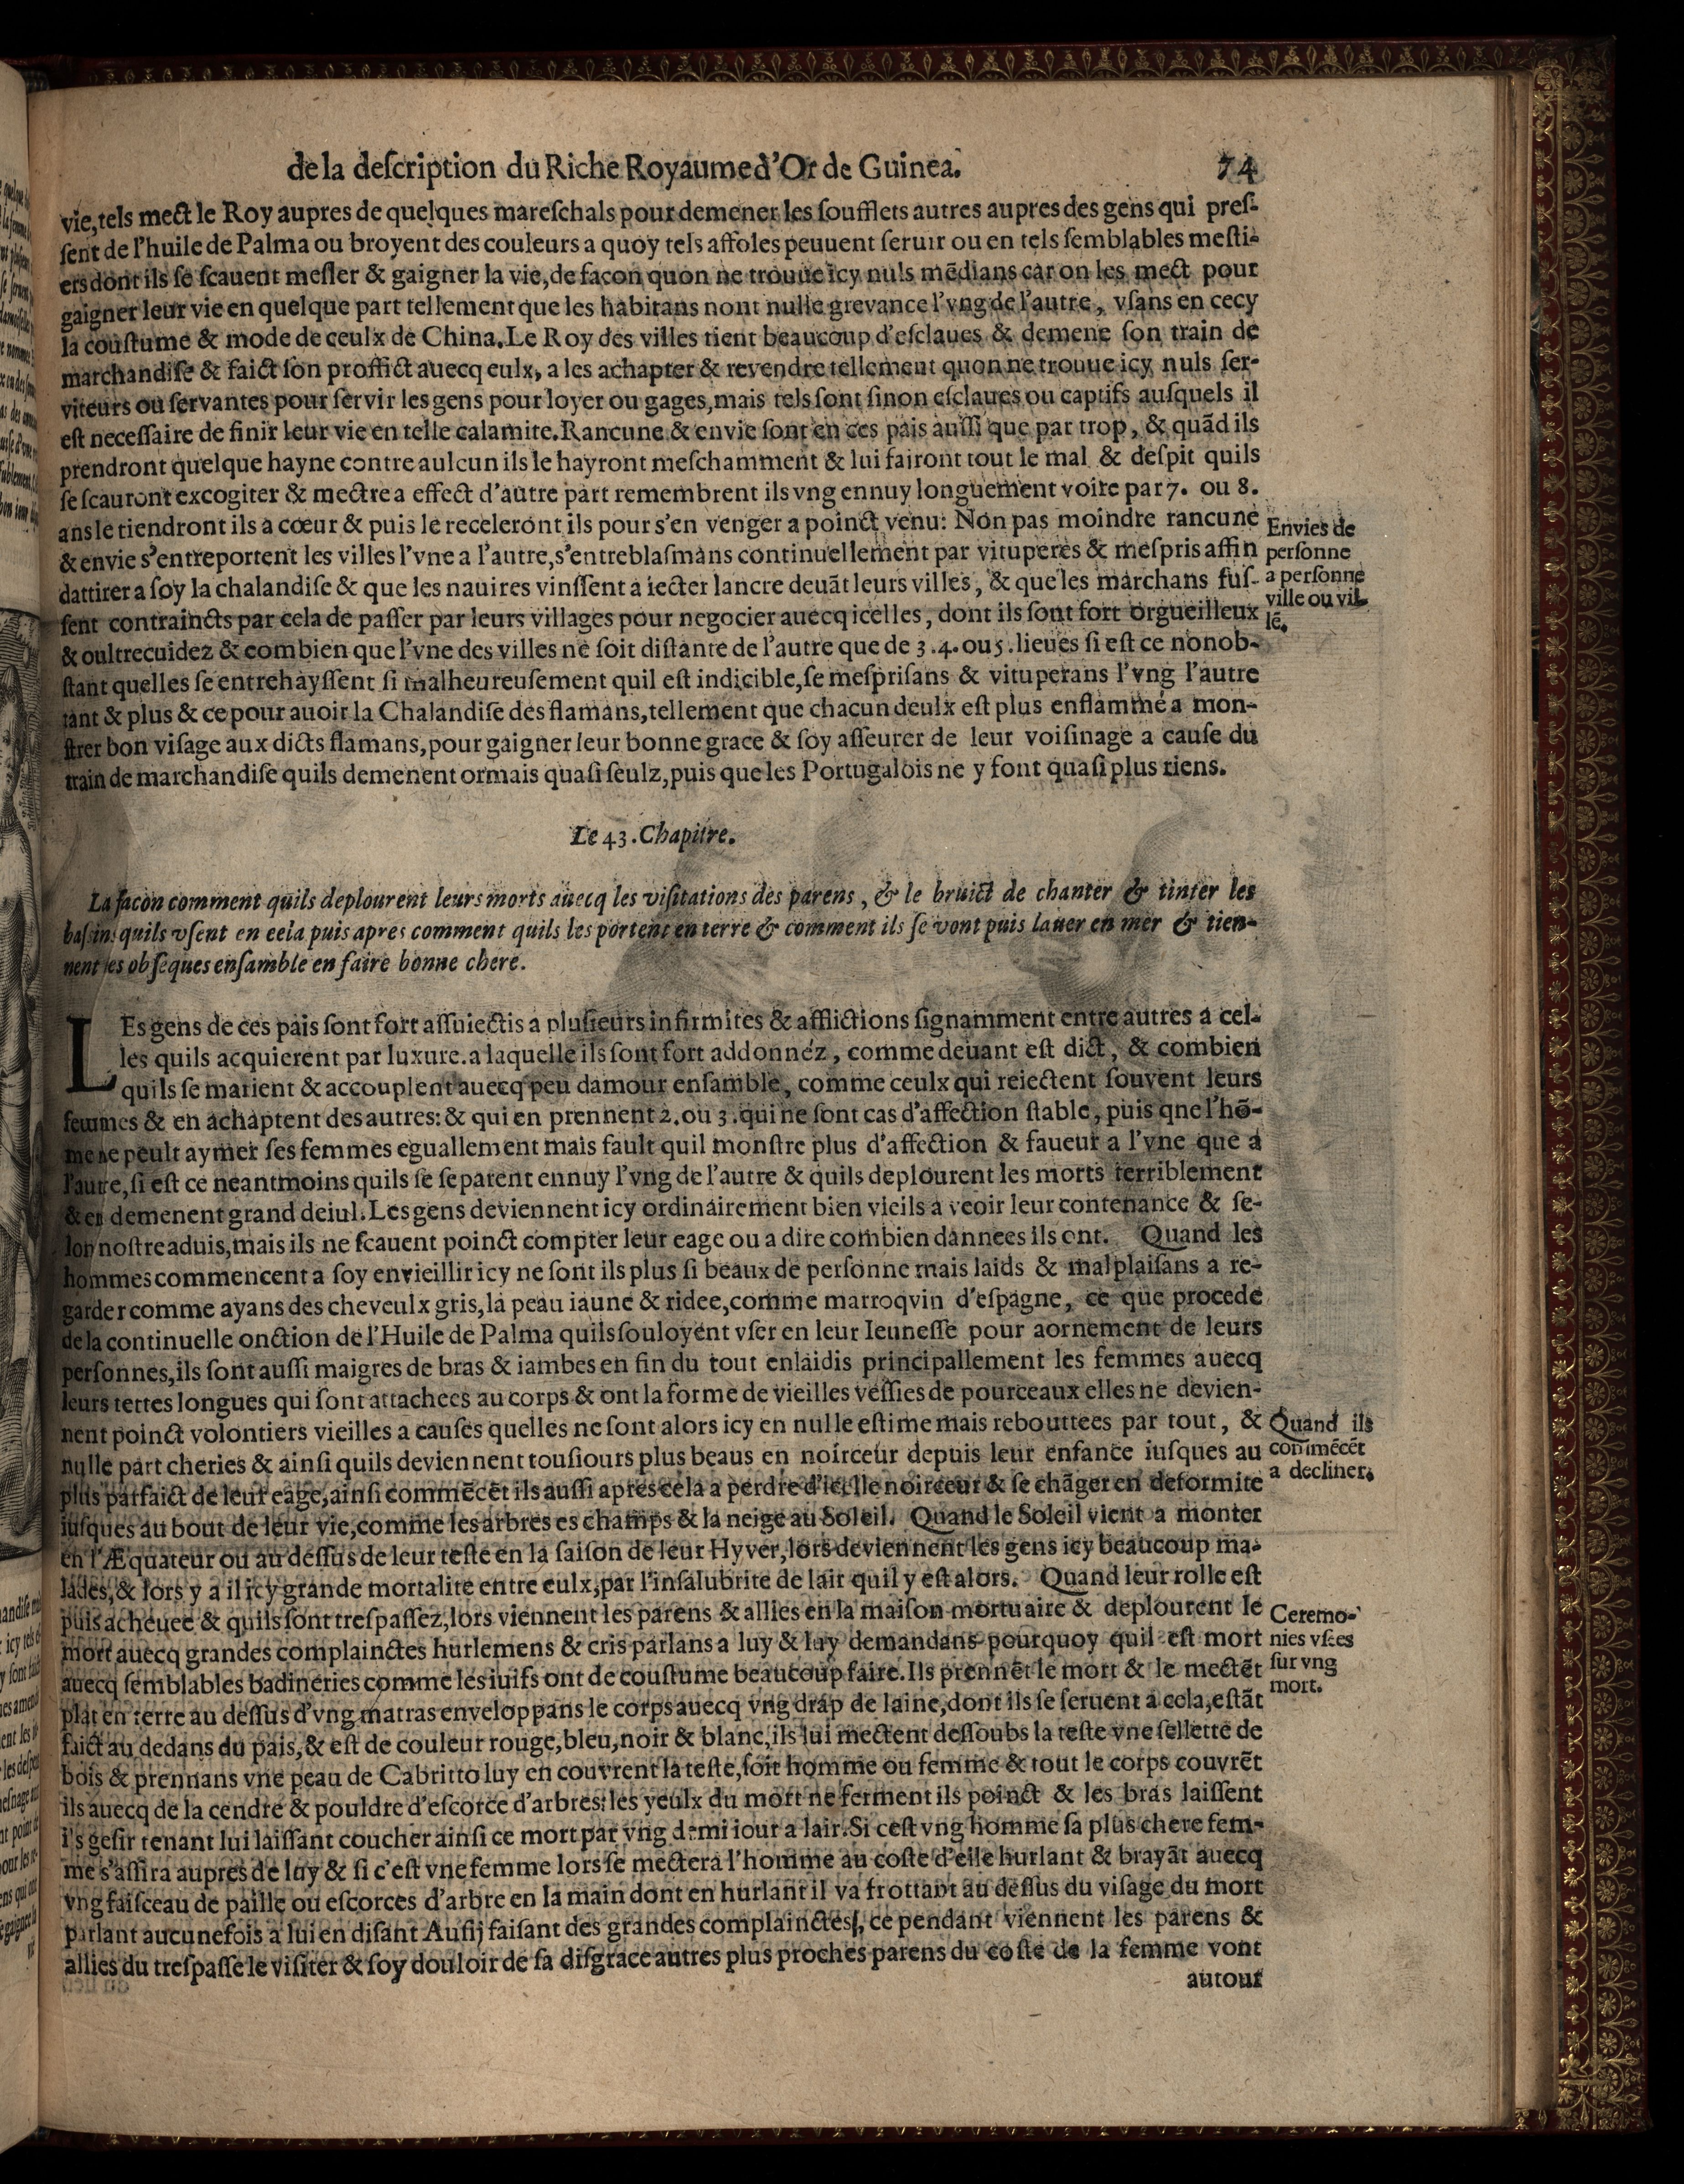 de la deſcription du Riche Royaume d'Or de Guinea. 74
vie, tels mect le Roy aupres de quelques mareſchals pour demener les ſoufflets autres aupres des gens qui preſ-
ſent de l'huile de Palma ou broyent des couleurs a quoy tels affoles peuuent ſeruir ou en tels ſemblables meſti-
ers dont ils ſe ſcauent meſler & gaigner la vie, de facon quon ne trouue icy nuls mẽdians car on les mect pour
gaigner leur vie en quelque part tellement que les habitans nont nulle grevance l'vng de l'autre, vſans en cecy
la couſtume & mode de ceulx de China. Le Roy des villes tient beaucoup d'eſclaues & demene ſon train de
marchandiſe & faict ſon proffict auecq eulx, a les achapter & revendre tellement quon ne trouue icy nuls ſer-
viteurs ou ſervantes pour ſervir les gens pour loyer ou gages, mais tels ſont ſinon eſclaues ou captifs auſquels il
eſt neceſſaire de finir leur vie en telle calamite. Rancune & envie ſont en ces pais auſſi que par trop, & quãd ils
prendront quelque hayne contre aulcun ils le hayront meſchamment & lui fairont tout le mal & deſpit quils
ſe ſcauront excogiter & mectre a effect d'autre part remembrent ils vng ennuy longuement voire par 7. ou 8.
ans le tiendront ils a cœur & puis le receleront ils pour s'en venger a poinct venu: Non pas moindre rancune
& envie s'entreportent les villes l'vne a l'autre, s'entreblaſmans continuellement par vituperes & meſpris affin
dattirer a ſoy la chalandiſe & que les nauires vinſſent a iecter lancre deuãt leurs villes, & que les marchans fuſ-
ſent contraincts par cela de paſſer par leurs villages pour negocier auecq icelles, dont ils ſont fort orgueilleux
& oultrecuidez & combien que l'vne des villes ne ſoit diſtante de l'autre que de 3. 4. ou 5. lieues ſi eſt ce nonob-
ſtant quelles ſe entrehayſſent ſi malheureuſement quil eſt indicible, ſe meſpriſans & vituperans l'vng l'autre
tant & plus & ce pour auoir la Chalandiſe des flamans, tellement que chacun deulx eſt plus enflammé a mon-
ſtrer bon viſage aux dicts flamans, pour gaigner leur bonne grace & ſoy aſſeurer de leur voiſinage a cauſe du
train de marchandiſe quils demenent ormais quaſi ſeulz, puis que les Portugalois ne y font quaſi plus riens.
Envies de
perſonne
a perſonne
ville ou vil-
lẽ.
Le 43. Chapitre.
La facon comment quils deplourent leurs morts auecq les viſitations des parens, & le bruict de chanter & tinter les
baſsins quils vſent en cela puis apres comment quils les portent en terre & comment ils ſe vont puis lauer en mer & tien-
nent les obſeques enſamble en faire bonne chere.
LEs gens de ces pais ſont fort aſſuiectis a pluſieurs infirmites & afflictions ſignamment entre autres a cel-
les quils acquierent par luxure. a laquelle ils ſont fort addonnéz, comme deuant eſt dict, & combien
quils ſe marient & accouplent auecq peu damour enſamble, comme ceulx qui reiectent ſouvent leurs
femmes & en achaptent des autres: & qui en prennent 2. ou 3. qui ne ſont cas d'affection ſtable, puis qne l'hõ-
me ne peult aymer ſes femmes eguallement mais fault quil monſtre plus d'affection & faueur a l'vne que a
l'autre, ſi eſt ce neantmoins quils ſe ſeparent ennuy l'vng de l'autre & quils deplourent les morts terriblement
& en demenent grand deiul. Les gens deviennent icy ordinairement bien vieils a veoir leur contenance & ſe-
lon noſtre aduis, mais ils ne ſcauent poinct compter leur eage ou a dire combien dannees ils ont. Quand les
hommes commencent a ſoy envieillir icy ne ſont ils plus ſi beaux de perſonne mais laids & malplaiſans a re-
garder comme ayans des cheveulx gris, la peau iaune & ridee, comme marroqvin d'eſpagne, ce que procede
de la continuelle onction de l'Huile de Palma quils ſouloyent vſer en leur Ieuneſſe pour aornement de leurs
perſonnes, ils ſont auſſi maigres de bras & iambes en fin du tout enlaidis principallement les femmes auecq
leurs tettes longues qui ſont attachees au corps & ont la forme de vieilles veſſies de pourceaux elles ne devien-
nent poinct volontiers vieilles a cauſes quelles ne ſont alors icy en nulle eſtime mais rebouttees par tout, &
nulle part cheries & ainſi quils deviennent touſiours plus beaus en noirceur depuis leur enfance iuſques au
plus parfaict de leur eage, ainſi commẽcẽt ils auſſi apres cela a perdre d'icelle noirceur & ſe chãger en deformite
iuſques au bout de leur vie, comme les arbres es champs & la neige au Soleil. Quand le Soleil vient a monter
en l'Æquateur ou au deſſus de leur teſte en la ſaiſon de leur Hyver, lors deviennent les gens icy beaucoup ma-
lades, & lors y a il icy grande mortalite entre eulx, par l'inſalubrite de lair quil y eſt alors. Quand leur rolle eſt
puis acheuee & quils ſont treſpaſſez, lors viennent les parens & allies en la maiſon mortuaire & deplourent le
mort auecq grandes complainctes hurlemens & cris parlans a luy & luy demandans pourquoy quil eſt mort
auecq ſemblables badineries comme les iuifs ont de couſtume beaucoup faire. Ils prennẽt le mort & le mectẽt
plat en terre au deſſus d'vng matras enveloppans le corps auecq vng drap de laine, dont ils ſe ſeruent a cela, eſtãt
faict au dedans du pais, & eſt de couleur rouge, bleu, noir & blanc, ils lui mectent deſſoubs la teſte vne ſellette de
bois & prennans vne peau de Cabritto luy en couvrent la teſte, ſoit homme ou femme & tout le corps couvrẽt
ils auecq de la cendre & pouldre d'eſcorce d'arbres: les yeulx du mort ne ferment ils poinct & les bras laiſſent
i's geſir tenant lui laiſſant coucher ainſi ce mort par vng demi iour a lair. Si ceſt vng homme ſa plus chere fem-
me s'aſſira aupres de luy & ſi c'eſt vne femme lors ſe mectera l'homme au coſte d'elle hurlant & brayãt auecq
vng faiſceau de paille ou eſcorces d'arbre en la main dont en hurlant il va frottant au deſſus du viſage du mort
parlant aucunefois a lui en diſant Auſij faiſant des grandes complainctes, ce pendant viennent les parens &
allies du treſpaſſe le viſiter & ſoy douloir de ſa diſgrace autres plus proches parens du coſte de la femme vont
autour
Quand ils
commẽcẽt
a decliner.
Ceremo-
nies vſées
ſur vng
mort.